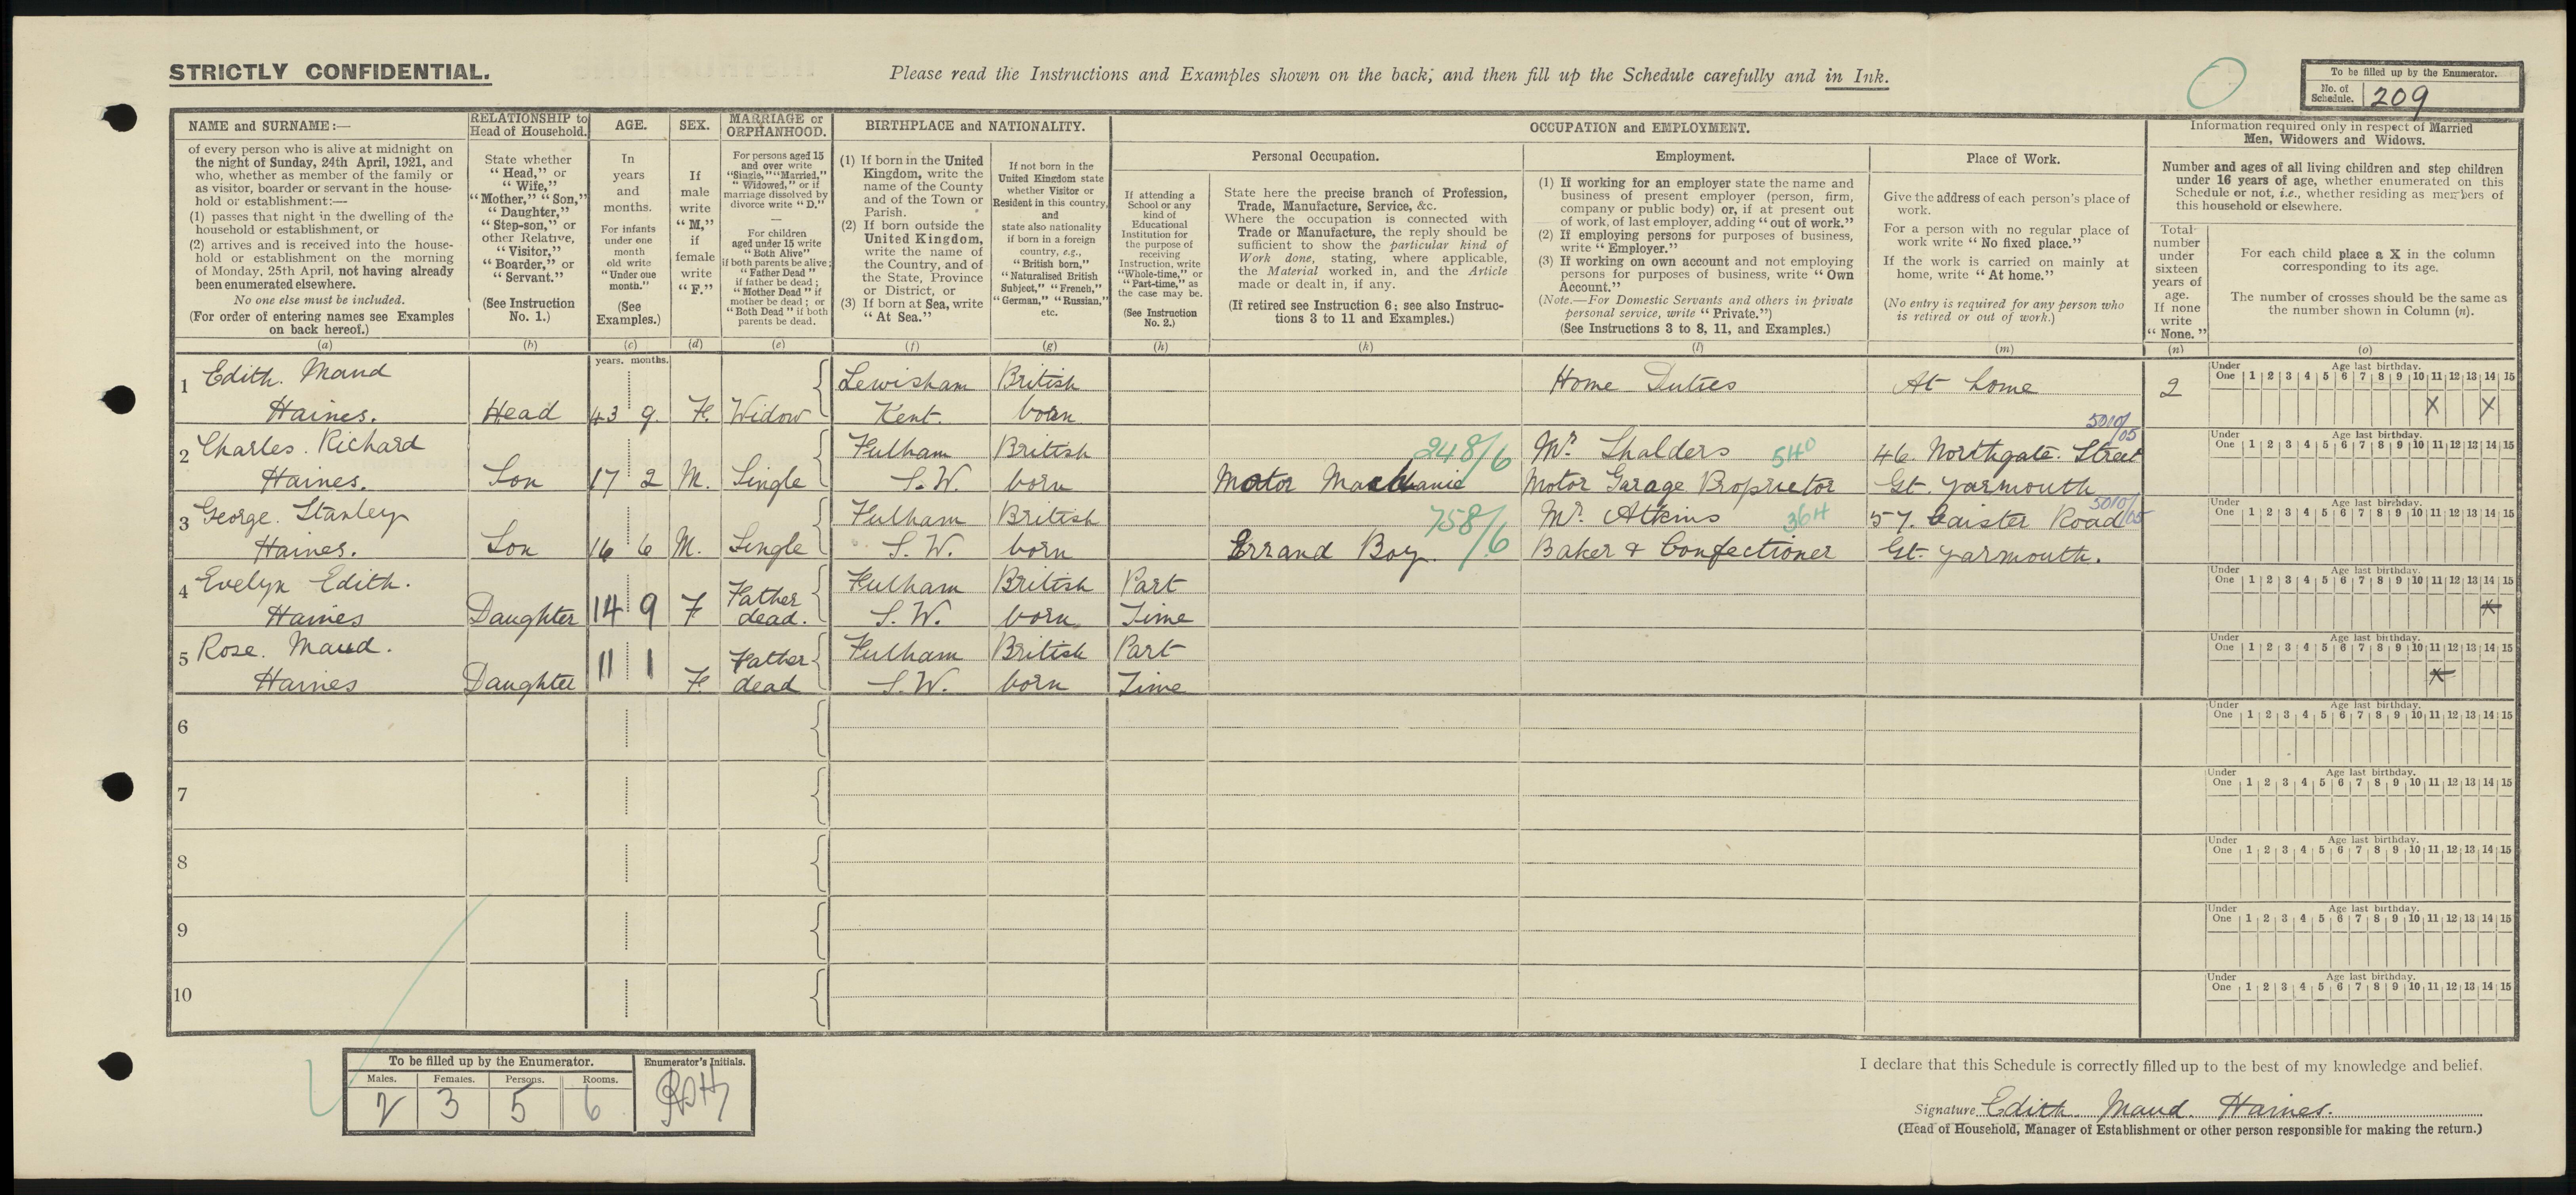 STRICTLY CONFIDENTIAL.
Please read the Instructions and Examples shown on the back; and then fill up the Schedule carefully and in Ink.
To be filled up by the Enumerator.
No. of Schedule. 209
NAME and SURNAME:—
of every person who is alive at midnight on
the night of Sunday, 24th April, 1921, and
who, whether as member of the family or
as visitor, boarder or servant in the house-
hold or establishment:—
(1) passes that night in the dwelling of the
household or establishment, or
(2) arrives and is received into the house-
hold or establishment on the morning
of Monday, 25th April, not having already
been enumerated elsewhere.
No one else must be included.
(For order of entering names see Examples
on back hereof.)
(a)
RELATIONSHIP to
Head of Household.
State whether
"Head," or
"Wife,"
"Mother," "Son,"
"Daughter,"
"Step-son," or
other Relative,
"Visitor,"
"Boarder," or
"Servant."
(See Instruction
No. 1.)
(b)
AGE.
In
years
and
months.
For infants
under one
month
old write
"Under one
month."
(See
Examples.)
(c)
SEX.
If
male
write
"M,"
if
female
write
"F."
(d)
MARRIAGE or
ORPHANHOOD.
For persons aged 15
and over write
"Single," "Married,"
"Widowed," or if
marriage dissolved by
divorce write "D."
—
For children
aged under 15 write
"Both Alive"
if both parents be alive;
"Father Dead"
if father be dead;
"Mother Dead" if
mother be dead; or
"Both Dead" if both
parents be dead.
(e)
BIRTHPLACE and NATIONALITY.
(1) If born in the United
Kingdom, write the
name of the County
and of the Town or
Parish.
(2) If born outside the
United Kingdom,
write the name of
the Country, and of
the State, Province
or District, or
(3) If born at Sea, write
"At Sea."
(f)
If not born in the
United Kingdom state
whether Visitor or
Resident in this country,
and
state also nationality
if born in a foreign
country, e.g.,
"British born,"
"Naturalised British
Subject," "French,"
"German," "Russian,"
etc.
(g)
OCCUPATION and EMPLOYMENT.
If attending a
School or any
kind of
Educational
Institution for
the purpose of
receiving
Instruction, write
"Whole-time," or
"Part-time," as
the case may be.
(See Instruction
No. 2.)
(h)
Personal Occupation.
State here the precise branch of Profession,
Trade, Manufacture, Service, &c.
Where the occupation is connected with
Trade or Manufacture, the reply should be
sufficient to show the particular kind of
Work done, stating, where applicable,
the Material worked in, and the Article
made or dealt in, if any.
(If retired see Instruction 6; see also Instruc-
tions 3 to 11 and Examples.)
(k)
Employment.
(1) If working for an employer state the name and
business of present employer (person, firm,
company or public body) or, if at present out
of work, of last employer, adding "out of work."
(2) If employing persons for purposes of business,
write "Employer."
(3) If working on own account and not employing
persons for purposes of business, write "Own
Account."
(Note.—For Domestic Servants and others in private
personal service, write "Private.")
(See Instructions 3 to 8, 11, and Examples.)
(l)
Place of Work.
Give the address of each person's place of
work.
For a person with no regular place of
work write "No fixed place."
If the work is carried on mainly at
home, write "At home."
(No entry is required for any person who
is retired or out of work.)
(m)
Information required only in respect of Married
Men, Widowers and Widows.
Number and ages of all living children and step children
under 16 years of age, whether enumerated on this
Schedule or not, i.e., whether residing as members of
this household or elsewhere.
Total
number
under
sixteen
years of
age.
If none
write
"None."
(n)
For each child place a X in the column
corresponding to its age.
The number of crosses should be the same as
the number shown in Column (n).
(o)
years. months.
1 Edith. Maud Lewisham British Home Duties At home 2
Haines. Head 43 9 F. Widow Kent. born
Under One 1 2 3 4 5 6 7 8 9 10 11 12 13 14 15
Age last birthday.
X X
2 Charles. Richard Fulham British 248/6 Mr. Shalders 540 46. Northgate. Street 5010/05
Haines. Son 17 2 M. Single S.W. born Motor Machanic Motor Garage Proprietor Gt. Yarmouth
Under One 1 2 3 4 5 6 7 8 9 10 11 12 13 14 15
Age last birthday.
3 George. Stanley Fulham British 758/6 Mr. Atkins 364 57. Caister Road 5010/05
Haines. Son 16 6 M. Single S.W. born Errand Boy. Baker & Confectioner Gt. Yarmouth.
Under One 1 2 3 4 5 6 7 8 9 10 11 12 13 14 15
Age last birthday.
4 Evelyn Edith. Father Fulham British Part
Haines Daughter 14 9 F dead. S.W. born Time
Under One 1 2 3 4 5 6 7 8 9 10 11 12 13 14 15
Age last birthday.
X
5 Rose. Maud. Father Fulham British Part
Haines Daughter 11 1 F. dead S.W. born Time
Under One 1 2 3 4 5 6 7 8 9 10 11 12 13 14 15
Age last birthday.
X
6
Under One 1 2 3 4 5 6 7 8 9 10 11 12 13 14 15
Age last birthday.
7
Under One 1 2 3 4 5 6 7 8 9 10 11 12 13 14 15
Age last birthday.
8
Under One 1 2 3 4 5 6 7 8 9 10 11 12 13 14 15
Age last birthday.
9
Under One 1 2 3 4 5 6 7 8 9 10 11 12 13 14 15
Age last birthday.
10
Under One 1 2 3 4 5 6 7 8 9 10 11 12 13 14 15
Age last birthday.
To be filled up by the Enumerator.
Males. Females. Persons. Rooms.
2 3 5 6
Enumerator's Initials.
I declare that this Schedule is correctly filled up to the best of my knowledge and belief.
Signature Edith. Maud. Haines.
(Head of Household, Manager of Establishment or other person responsible for making the return.)